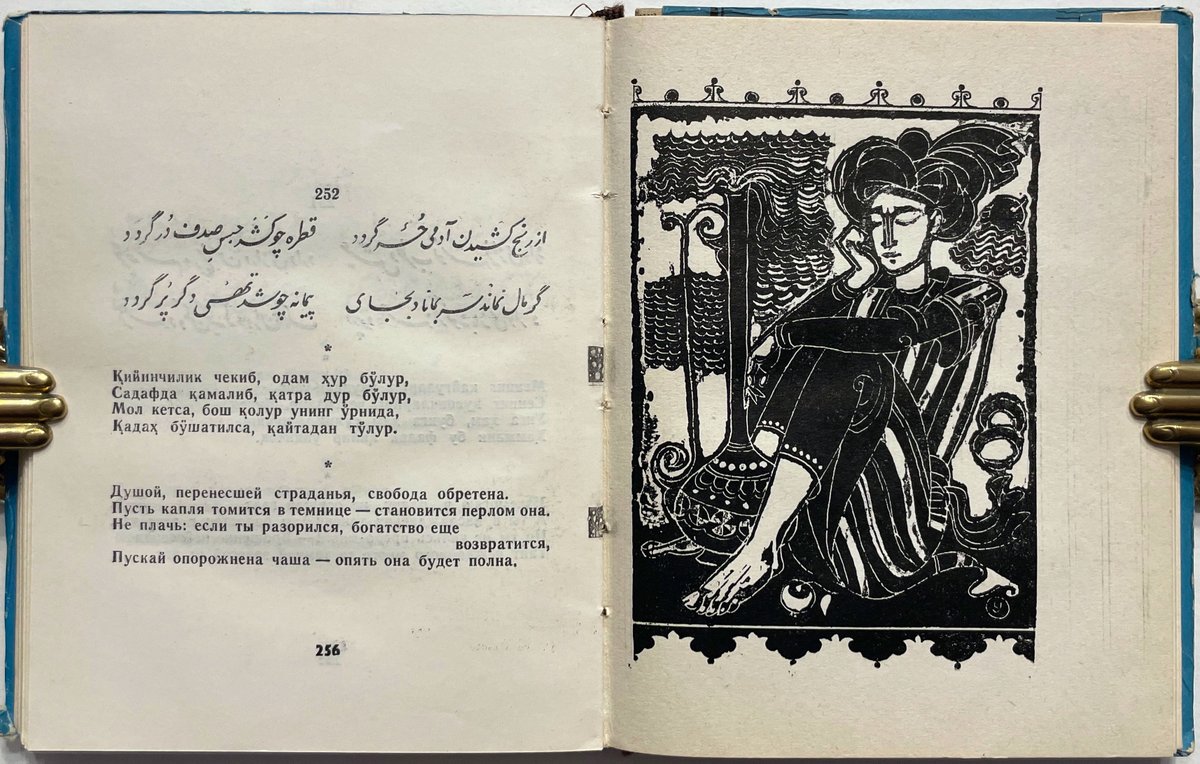 252
از رنج کشیدن آدمی حُر گردد قطره چو کشد حبس صدف دُر گردد
گر مال نماند سر بماناد بجای پیمانه چو شد تهی دگر پُر گردد
*
Қийинчилик чекиб, одам ҳур бўлур,
Садафда қамалиб, қатра дур бўлур,
Мол кетса, бош қолур унинг ўрнида,
Қадаҳ бўшатилса, қайтадан тўлур.
*
Душой, перенесшей страданья, свобода обретена.
Пусть капля томится в темнице — становится перлом она.
Не плачь: если ты разорился, богатство еще
возвратится,
Пускай опорожнена чаша — опять она будет полна.
256